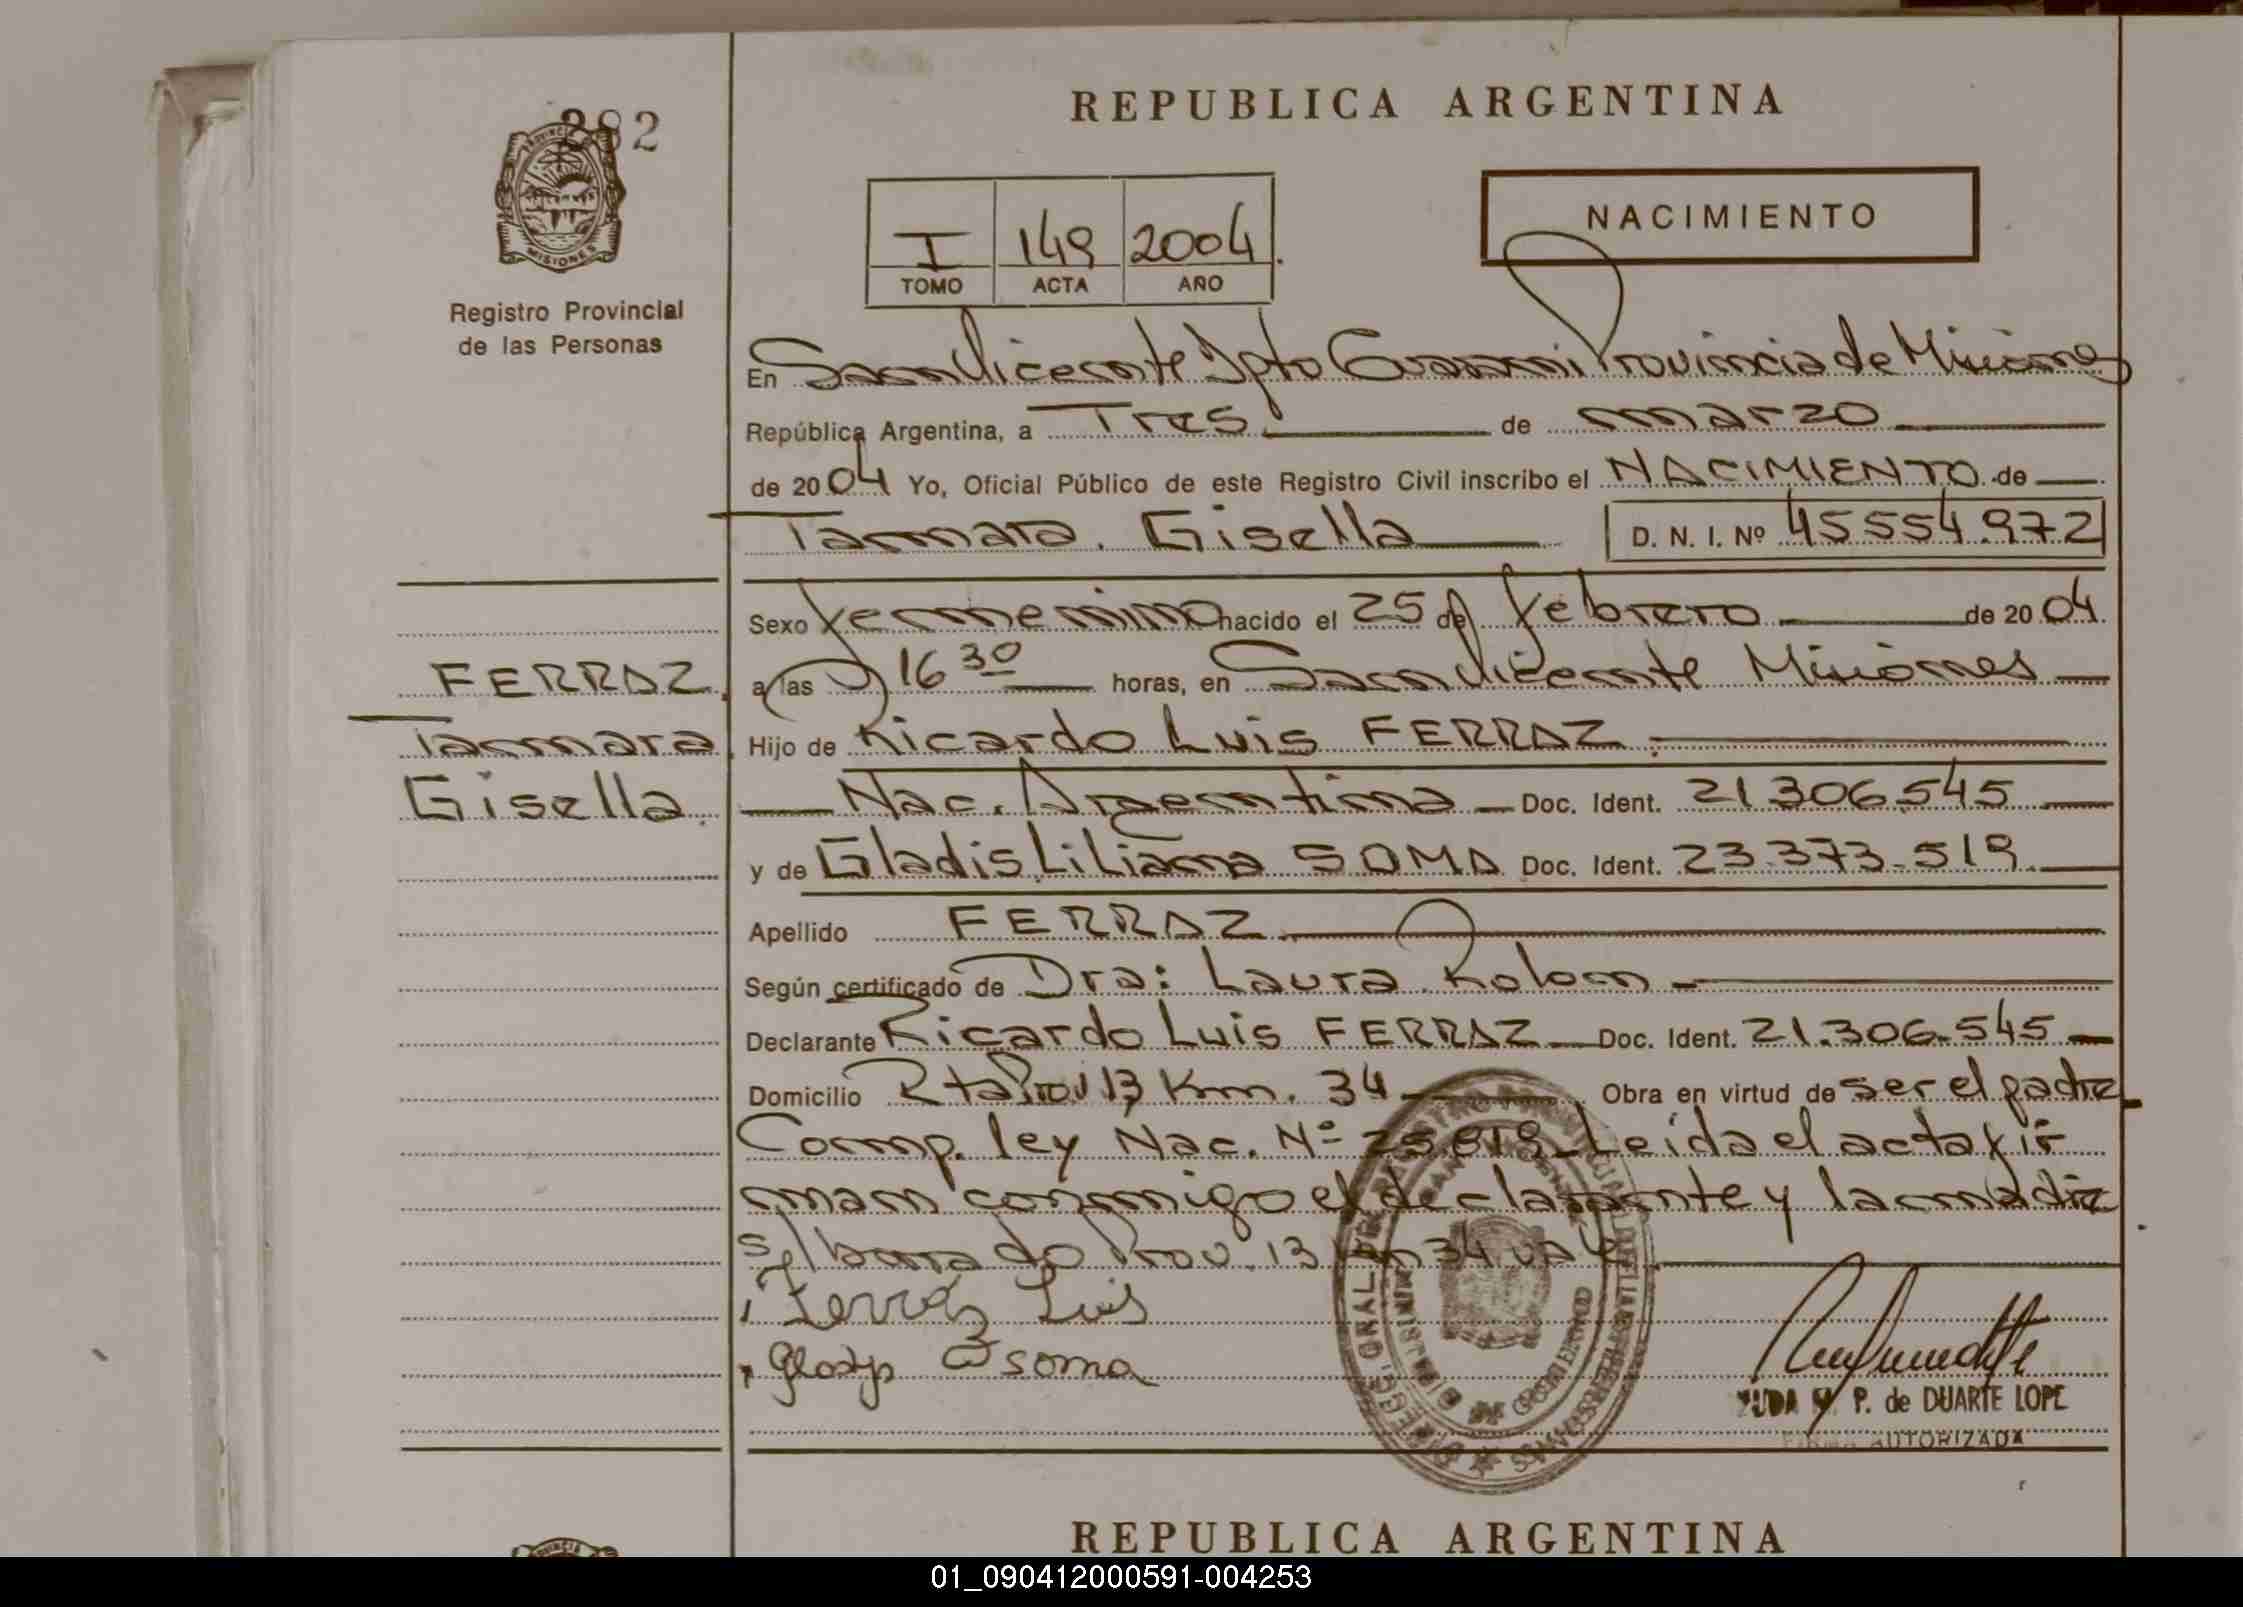 382
PROVINCIA
MISIONES
Registro Provincial
de las Personas
FERRAZ
Tamara
Gisella.
REPUBLICA ARGENTINA
NACIMIENTO
I 149 2004.
TOMO ACTA AÑO
En San Vicente Dpto Guarani Provincia de Misiones
República Argentina, a Tres de marzo
de 2004 Yo, Oficial Público de este Registro Civil inscribo el NACIMIENTO de
Tamara Gisella D. N. I. Nº 45554.972
Sexo femenino nacido el 25 de febrero de 2004.
a las 16 30 horas, en San Vicente Misiones
Hijo de Ricardo Luis FERRAZ
Nac. Argentina Doc. Ident. 21306.545
y de Gladis Liliana SOMA Doc. Ident. 23.373.519
Apellido FERRAZ
Según certificado de Dra: Laura Kolom
Declarante Ricardo Luis FERRAZ Doc. Ident. 21.306.545
Domicilio Rta Prov 13 Km. 34 Obra en virtud de ser el padre
Comp. ley Nac. Nº 25.819 Leida el acta fir
man conmigo el declarante y la madre
Prov. 13 34 vale
Ferraz Luis
Gladys soma
P. de DUARTE LOPE
AUTORIZADA
MINISTERIO GOBIERNO
REPUBLICA ARGENTINA
01_090412000591-004253